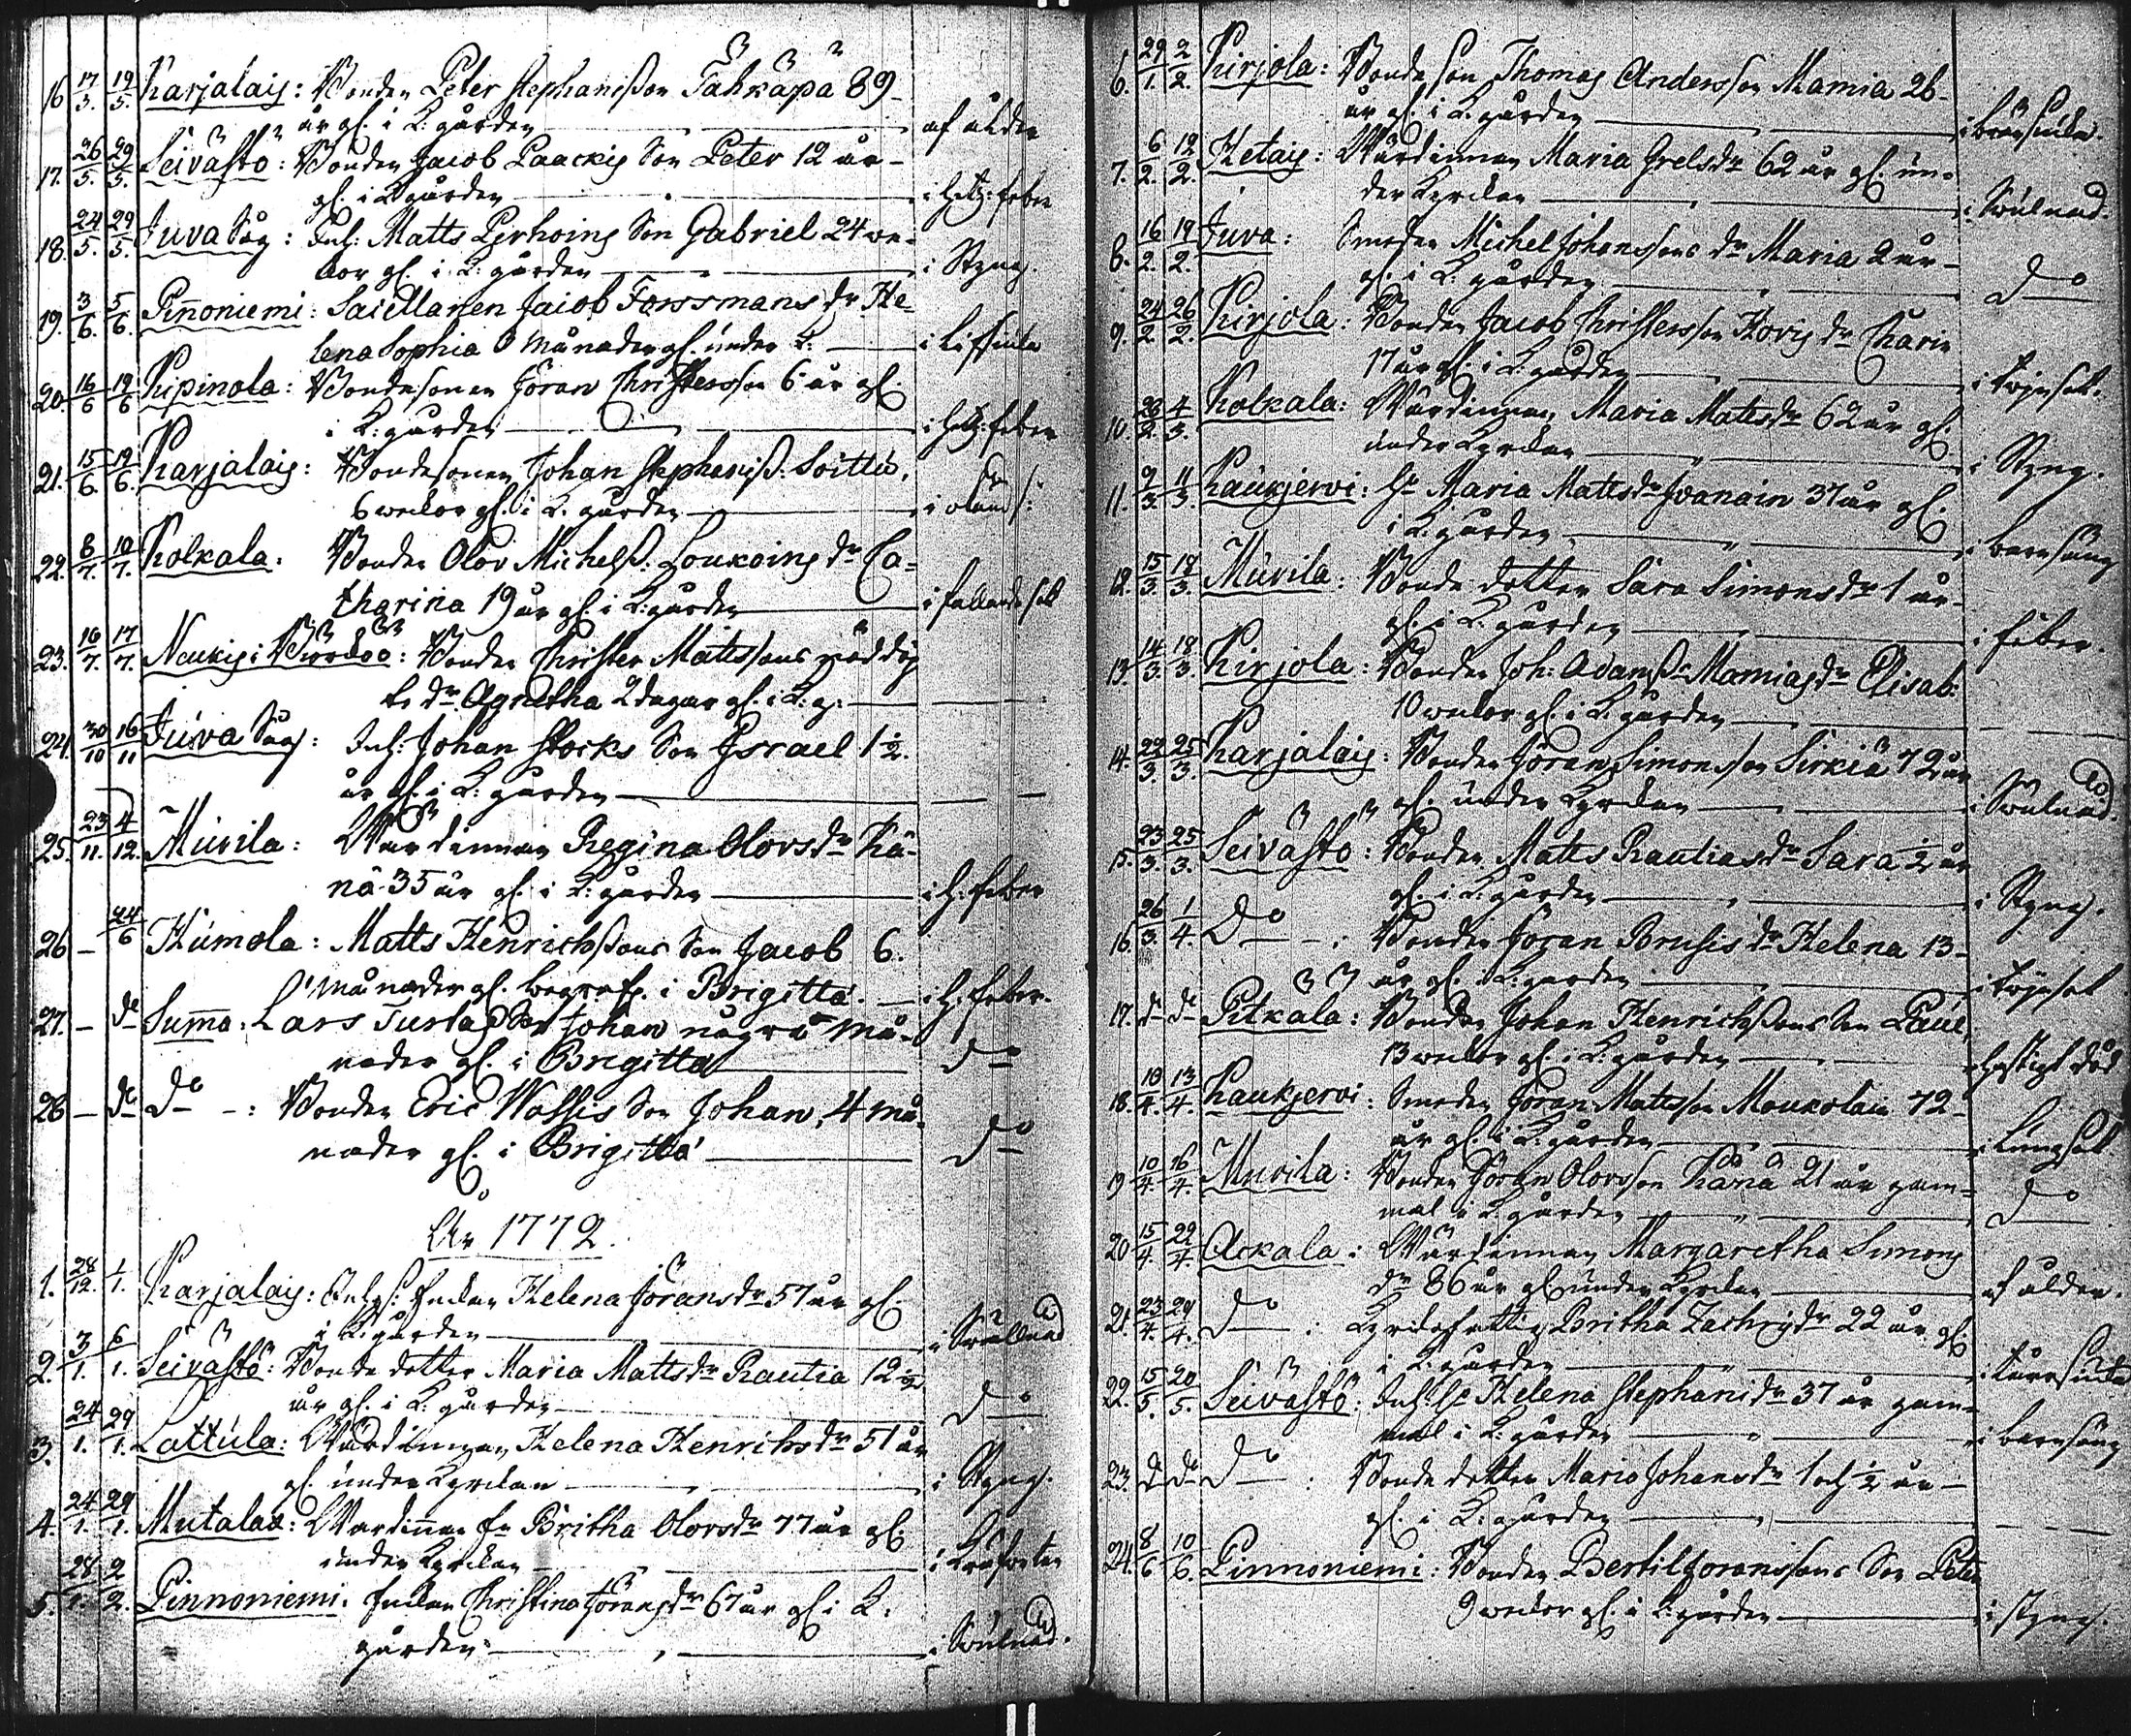 16 17/5. 19/5. Karjalais: Bonden Peter Stephanisson Tähkäpä 89
år gl. i K: gården — af ålder
17. 26/5. 29/5. Seivästö: Bonden Jacob Paackis Son Peter 12 år
gl. i K gården — i hetz: feber
18. 24/5. 29/5. Juva Såg: Inh: Matts Pyrhöins Son Gabriel 24 we-
kor gl. i K: gården — i Styng.
19. 3/6. 5/6. Pinnoniemi: Jacob Forssmans dr He-
lena Sophia 8 månader gl. under K:
20. 16/6 19/6 Pipinola: Bondesonen Jöran Christersson 6 år gl.
i K: gården — i hetz: feber
21. 15/6. 19/6. Karjalais: Bondesonen Johan Stephaniss: Soittu,
6 weckor gl. i K. gården
22. 8/7. 10/7. Kolkala: Bonden Olov Michelss. Loukoins dr Ca=
tharina 19 år gl. i K: gården — i fallande sot
23. 16/7. 17/7. Naukis i: Bonden Christer Mattssons nöddöp
te dr. Agnetha 2 dagar gl. i K. g.
24. 30/10 16/11 Juva Såg: Inh: Johan Stocks Son Israel 1 1/2.
år gl. i K: gården
25. 23/11. 4/12. Murila: Wärdinnan Regina Olovsdr Kä-
nä 35 år gl. i K: gården — i h. feber
26 — 24/6 Humola: Matts Henrichssons Son Jacob 6.
månader gl. begrafv. i Brigitta. — i h. feber.
27. — do Summa: Lars Son Johan några må-
nader gl. i Brigitta — do
28 — do do —: Bonden Eric Wossis Son Johan, 4 må-
nader gl. i Brigitta — do
År 1772.
1. 28/12. 1/1. Karjalais: Enkan Helena Jöransdr 57 år gl
i K. gården
2. 3/1. 6/1. Seivästö: Bonde dotter Maria Mattsdr Rautia 12 1/2
år gl. i K. gården — do
3. 24/1. 29/1. Lattula: Wärdinnan Helena Henrichsdr 51 år
gl. under Kyrckan — i Styng.
4. 24/1. 29/1. Mutalax: Wärdinnan Britha Olovsdr 77 år gl.
under Kyrckan
5. 28/1. 2/2. Pinnoniemi: Enkan Christina Jöransdr 67 år gl. i K:
gården — i Swulnad.
6. 29/1. 2/2. Kirjola: Bonde son Thomas Andersson Mamia 26
år gl. i K. gården — i bröstsiuka.
7. 6/2. 12/2. Hetais: Wärdinnan Maria Grelsdr 62 år gl. un-
der Kyrckan — i Swulnad.
8. 16/2. 19/2. Juva: Smeden Michel Johanssons dr Maria 2 år
gl. i K. gården — do
9. 24/2. 26/2. Kirjola: Bonden Jacob Christersson Hovis dr Charin
17 år gl. i K. gården
10. 23/2. 4/3. Kolkala: Wärdinnan Maria Mattsdr 62 år gl.
under Kyrckan — i Styng.
11. 9/3. 11/3. Kaukjervi: Maria Mattsdr Ivanain 37 år gl.
i K. gården — i barnsäng
12. 15/3. 18/3. Murila: Bonde dotter Sara Simonsdr 1 år
gl. i K. gården — i feber.
13. 14/3. 18/3. Kirjola: Bonden Joh: Adamssr Mamias dr Elisab:
10 weckor gl. i K. gården
14. 22/3. 25/3. Karjalais: Bonden Jöran Simonsson Sirkiä 72 år
gl. under Kyrckan — i Swulnad.
15. 23/3. 25/3. Seivästö: Bonden Matts Rautias dr Sara 1/2 år
gl. i K. gården — i Styng.
16. 26/3. 1/4. do: Bonden Jöran Brusis dr Helena 13
år gl. i K. gården
17. do do Pitkälä: Bonden Johan Henrichssons Son Paul,
13 weckor gl. i K. gården — hastigt död
18. 10/4. 13/4. Kaukjervi: Smeden Jöran Mattsson Moukolain 72
år gl. i K. gården — i Lungsot
19 10/4. 16/4. Murila: Bonden Jöran Olovsson Känä 21 år gam-
mal i K. gården — do
20 15/4. 22/4. Ackala: Wärdinnan Margaretha Simons
dr 86 år gl. under Kyrckan — af ålder.
21. 23/4. 29/4. do: Kyrckofattig Britha Zachrisdr 22 år gl.
i K. gården
22. 15/5. 20/5. Seivästö: Inh: Helena Stephanidr 37 år gam-
mal i K. gården — i barnsäng
23. do do do: Bonde dotter Maria Johansdr 1 och 1/2 år
gl. i K. gården
24. 8/6 10/6. Pinnoniemi: Bonden Bertil Joranssons Son Peter
9 weckor gl. i K. gården — i styng.